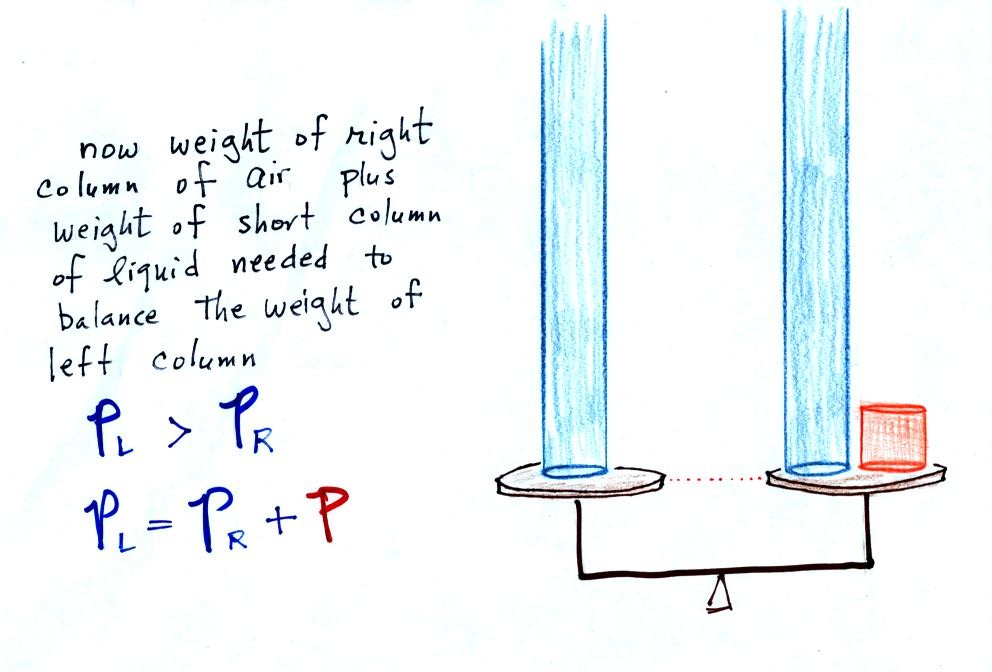 now weight of right
column of air plus
weight of short column
of liquid needed to
balance the weight of
left column
P_L > P_R
P_L = P_R + P